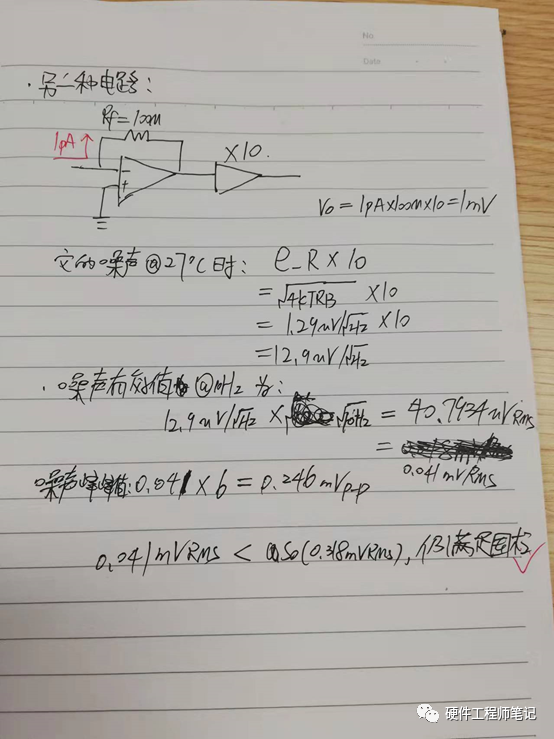 No
Date
· 另一种电路:
Rf=100M
1pA
×10.
Vo = 1pA×100M×10=1mV
它的噪声@27℃时: e_R × 10
= √4kTRB × 10
= 1.29uV/√Hz × 10
= 12.9uV/√Hz
· 噪声有效值 @10Hz 为:
12.9uV/√Hz × √10Hz = 40.7934uVRms
= 0.041mVRms
噪声峰峰值:0.041 × 6 = 0.246mVp-p
0.041mVRms < (0.318mVRms), 仍满足国标
硬件工程师笔记